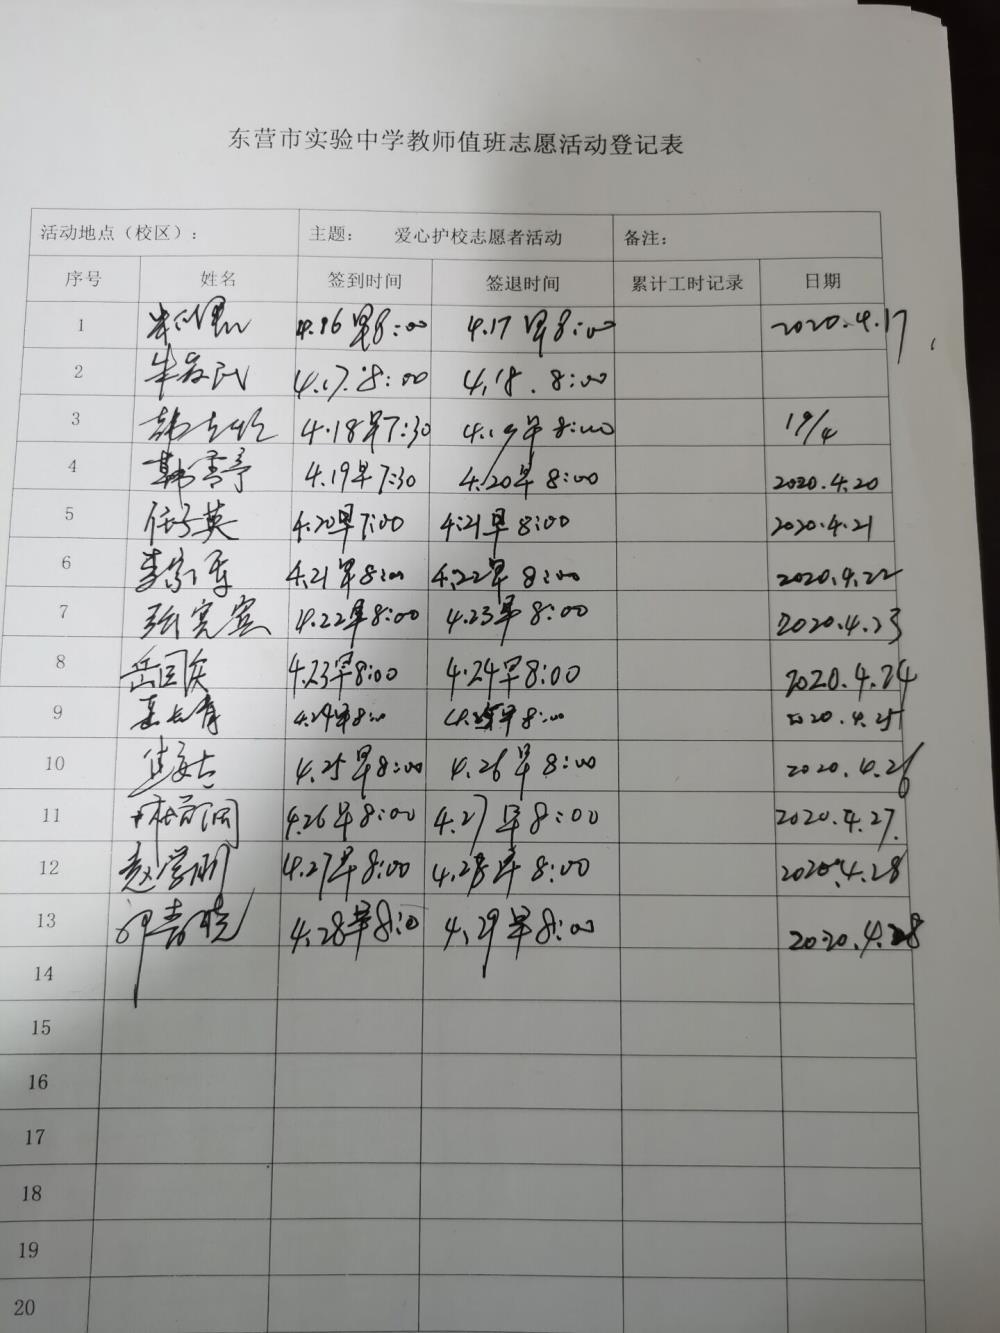 东营市实验中学教师值班志愿活动登记表
活动地点（校区）： 主题： 爱心护校志愿者活动 备注：
序号 姓名 签到时间 签退时间 累计工时记录 日期
1 4.16早8:00 4.17早8:00 2020.4.17
2 4.17.8:00 4.18.8:00
3 4.18早7:30 4.19早8:00 19/4
4 韩雪亭 4.19早7:30 4.20早8:00 2020.4.20
5 4.20早7:00 4.21早8:00 2020.4.21
6 4.21早8:00 4.22早8:00 2020.4.22
7 4.22早8:00 4.23早8:00 2020.4.23
8 4.23早8:00 4.24早8:00 2020.4.24
9 4.24早8:00 4.25早8:00 2020.4.25
10 4.25早8:00 4.26早8:00 2020.4.26
11 4.26早8:00 4.27早8:00 2020.4.27.
12 赵学明 4.27早8:00 4.28早8:00 2020.4.28
13 4.28早8:00 4.29早8:00 2020.4.28
14
15
16
17
18
19
20